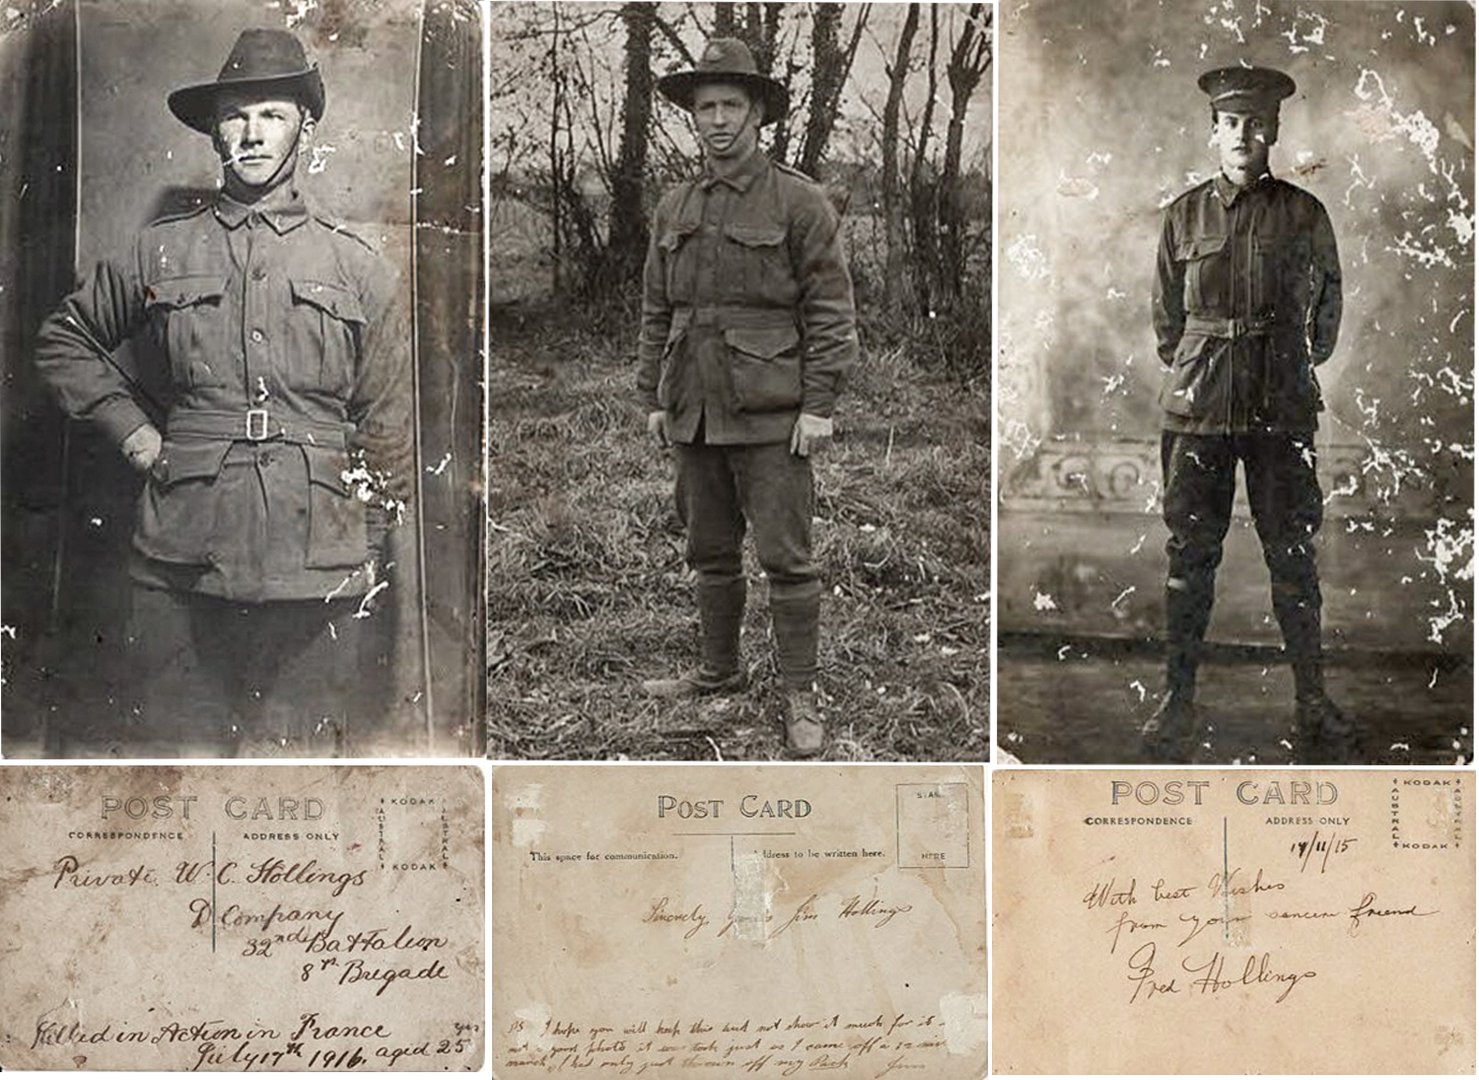 POST CARD
CORRESPONDENCE
ADDRESS ONLY
KODAK
AUSTRAL
AUSTRAL
KODAK
Private W. C. Hollings
D Company
32nd Battalion
8th Brigade
Killed in Action in France
July 17th 1916. aged 25 yrs
POST CARD
This space for communication.
Address to be written here.
STAMP
HERE
Sincerely Yours Jim Hollings
PS I hope you will keep this and not show it much for its
not a good photo it was took just as I came off a 12 mile
march, I had only just thrown off my Pack Jim
POST CARD
CORRESPONDENCE
ADDRESS ONLY
KODAK
AUSTRAL
AUSTRAL
KODAK
14/11/15
With best Wishes
from your sencere friend
Fred Hollings